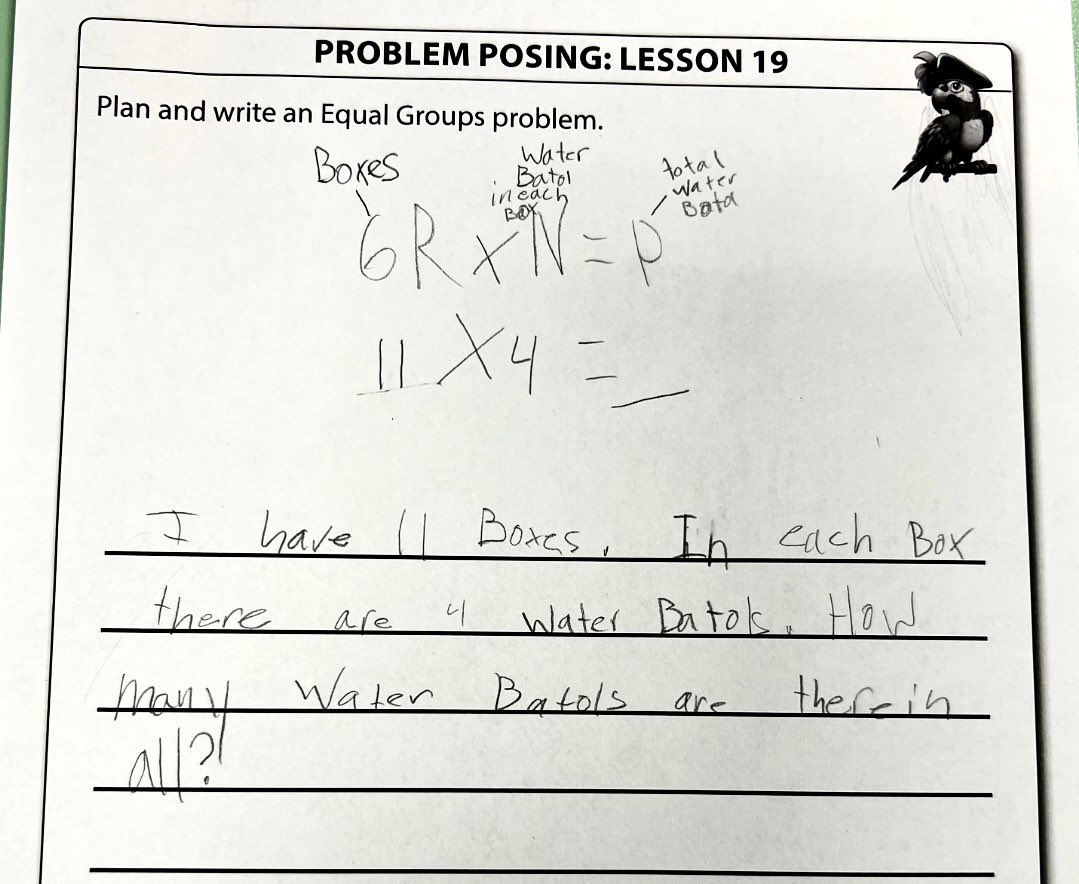 PROBLEM POSING: LESSON 19
Plan and write an Equal Groups problem.
Boxes
Water
Batol
in each
Box
total
water
Batol
GR x N = P
11 x 4 = _
I have 11 Boxes. In each Box
there are 4 water Batols. How
many Water Batols are there in
all?